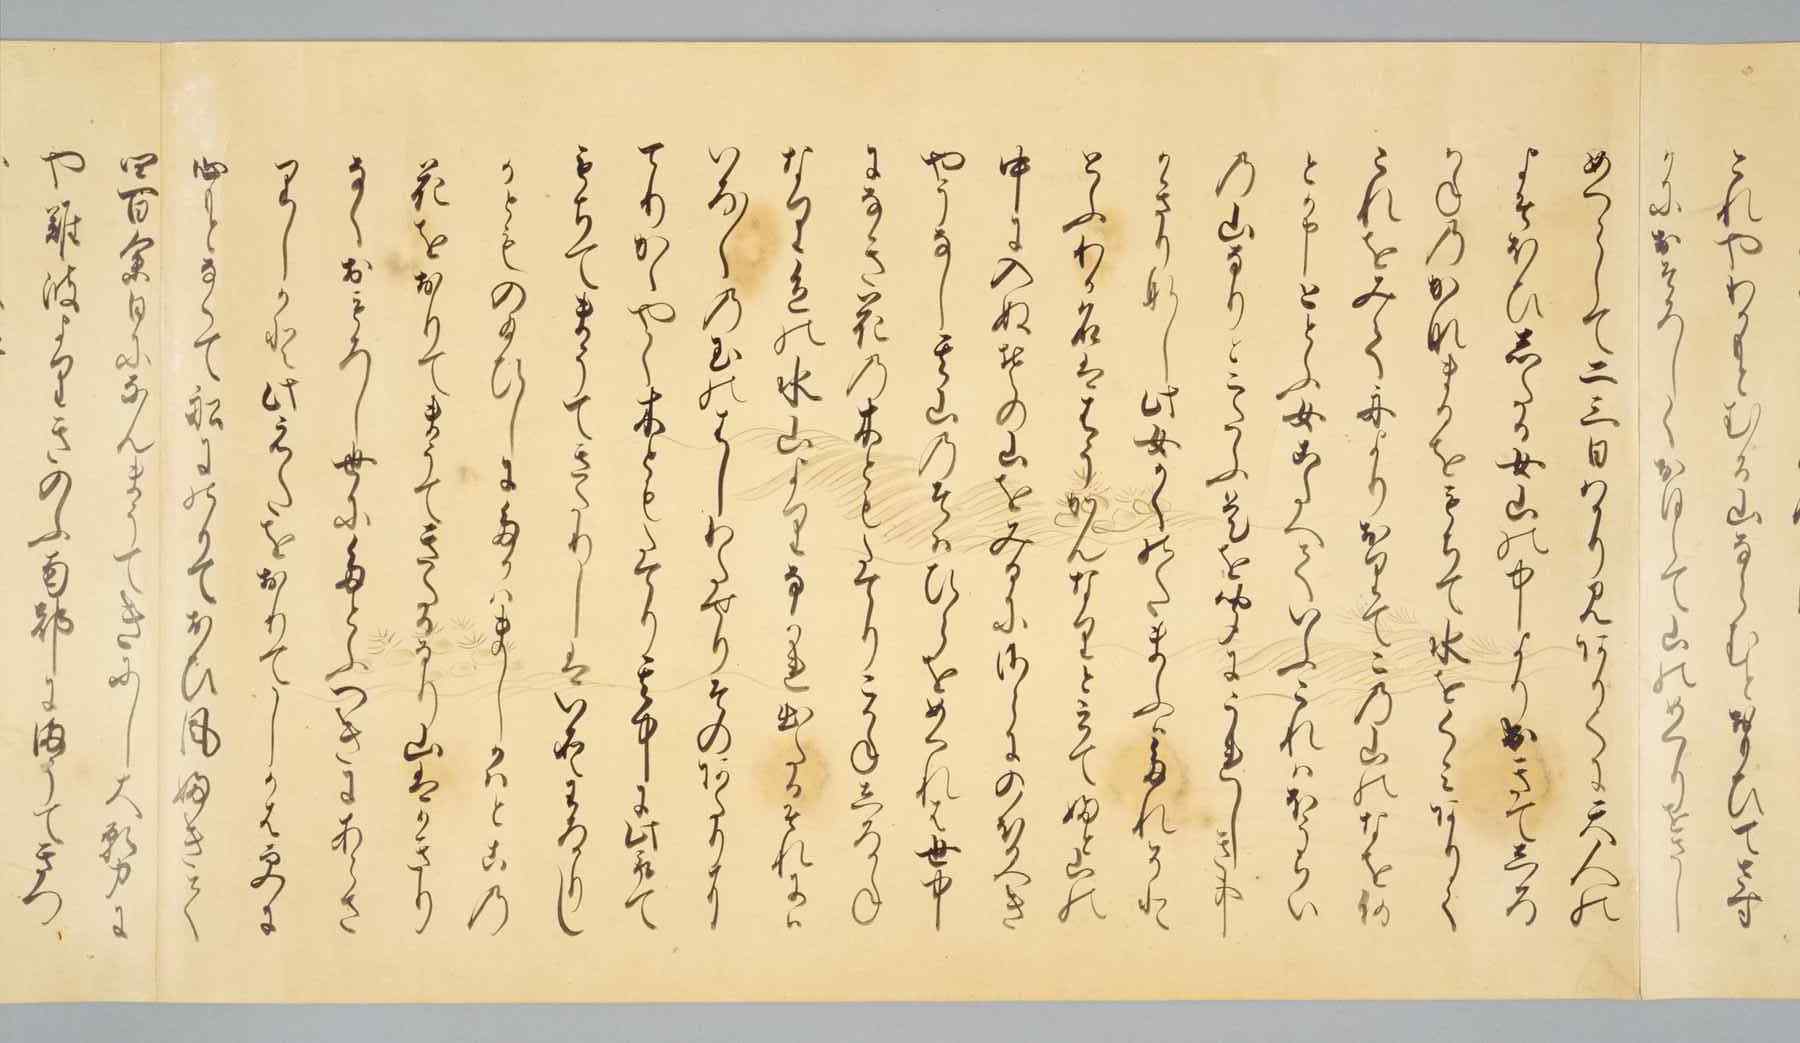 これやわかもとむる山ならむとおもひてさす
かにおそろしくおほして山のめくりをさし
めくらして二三日はかり見ありくに天人の
よそほひしたる女山の中よりいてきてしろ
かねのかなまりをもちて水をくみありく
これをみて舟よりおりてこの山のなを何
とか申ととふ女こたへていふこれはほうらい
の山なりとこたふ是を聞にうれしき事
かきりなし此女かくのたまふはたれそと
とふわか名ははうかんなりと云てふと山の
中に入ぬその山をみるにさらにのほるへき
やうなし其山のそはひらをめくれは世中
になき花の木ともたてりこかねしろかね
なり色の水山よりなかれ出たるそれには
いろ〳〵の玉のはしわたせりそのあたりに
てりかゝやく木ともたてり其中に此取て
もちてまうてきたりしはいとわろかりし
かとものたまひしにたかはましかはとこの
花をおりてまうてきたるなり山はかきり
なくおもしろし世にたとふへきにあらさ
りしかと此えたをおりてしかは更に
心もとなくて船にのりておひ風ふきて
四百余日になんまうてきにし大願力に
や難波よりきのふ南都にまうてきつ